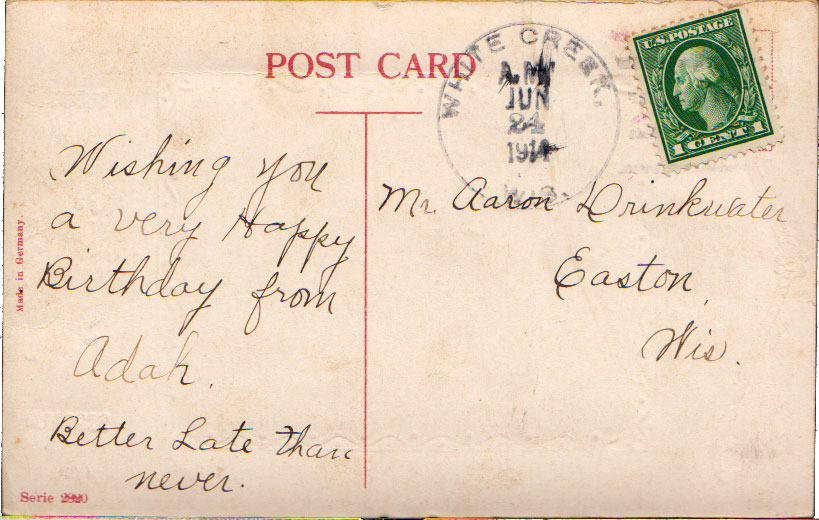 POST CARD
WHITE CREEK,
A.M
JUN
24
1914
WIS.
U.S. POSTAGE
1 CENT 1
Wishing you
a very Happy
Birthday from
Adah.
Better Late than
never.
Mr. Aaron Drinkwater
Easton,
Wis.
Made in Germany.
Serie